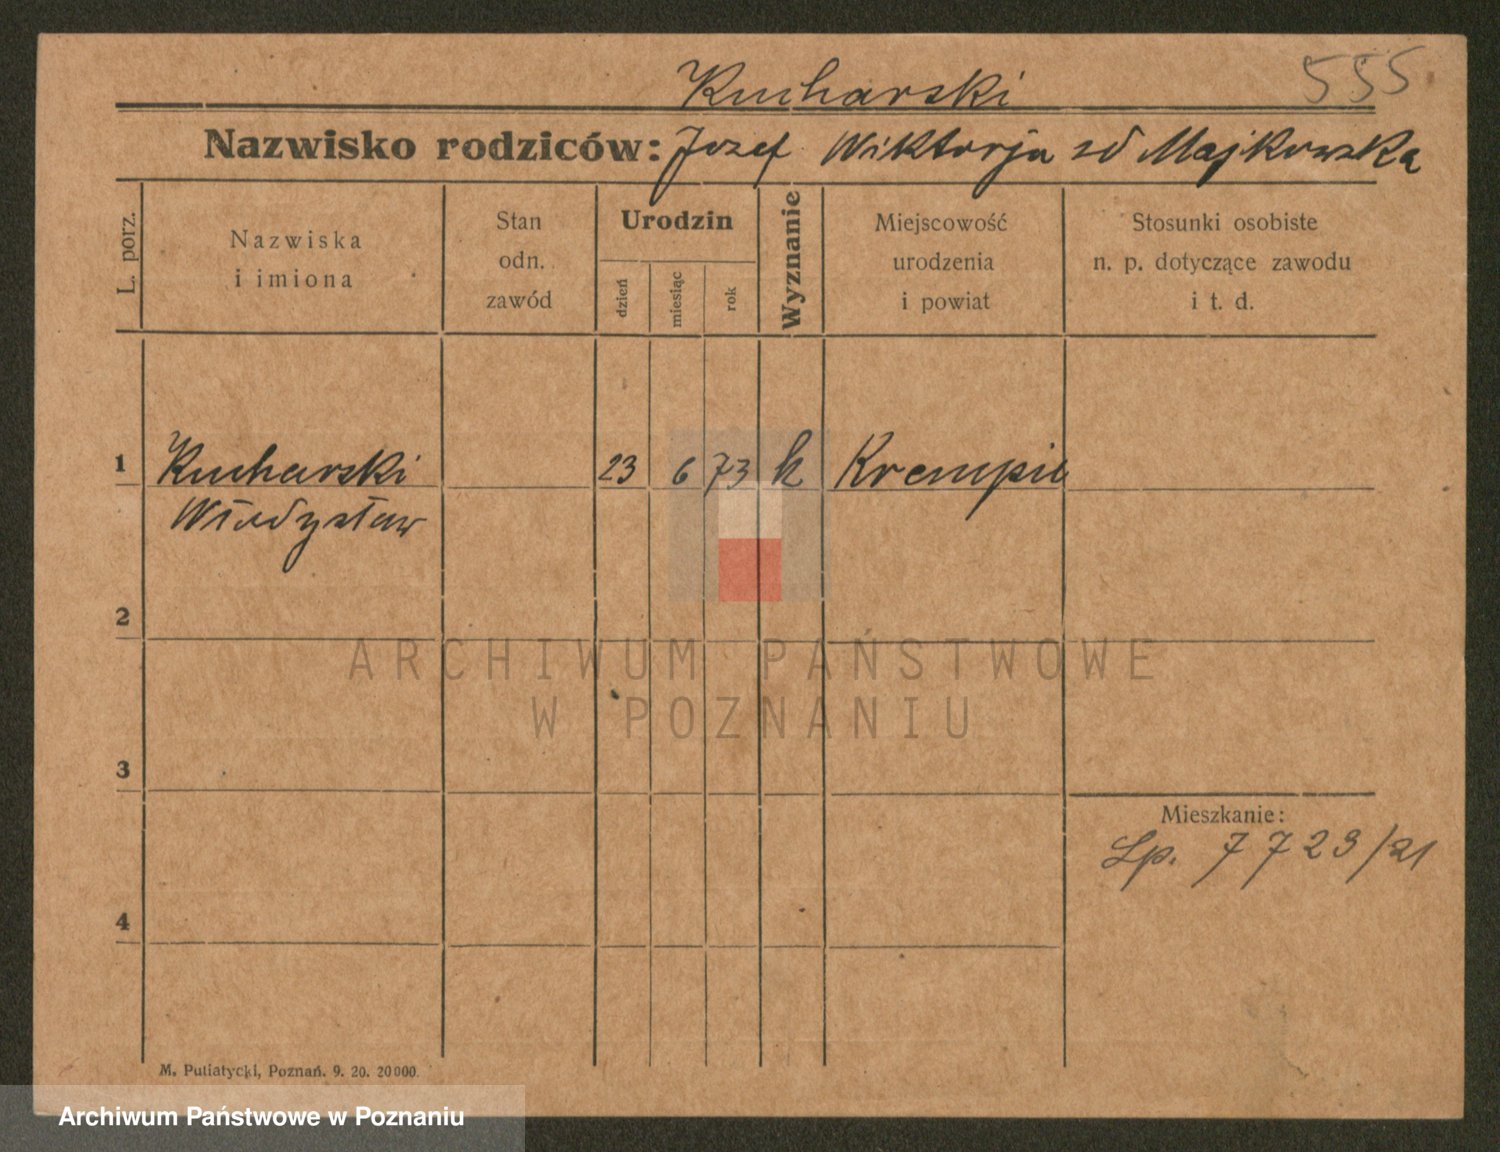 Kucharski 555
Nazwisko rodziców: Jozef Wiktorja zd Majkowska
L. porz.
Nazwiska
i imiona
Stan
odn.
zawód
Urodzin
dzień
miesiąc
rok
Wyznanie
Miejscowość
urodzenia
i powiat
Stosunki osobiste
n. p. dotyczące zawodu
i t. d.
1 Kucharski 23 6 73 k Krempie
Władysław
2
3
4
Mieszkanie:
Lp. 7723/21
M. Putiatycki, Poznań. 9. 20. 20000.
ARCHIWUM PAŃSTWOWE
W POZNANIU
Archiwum Państwowe w Poznaniu